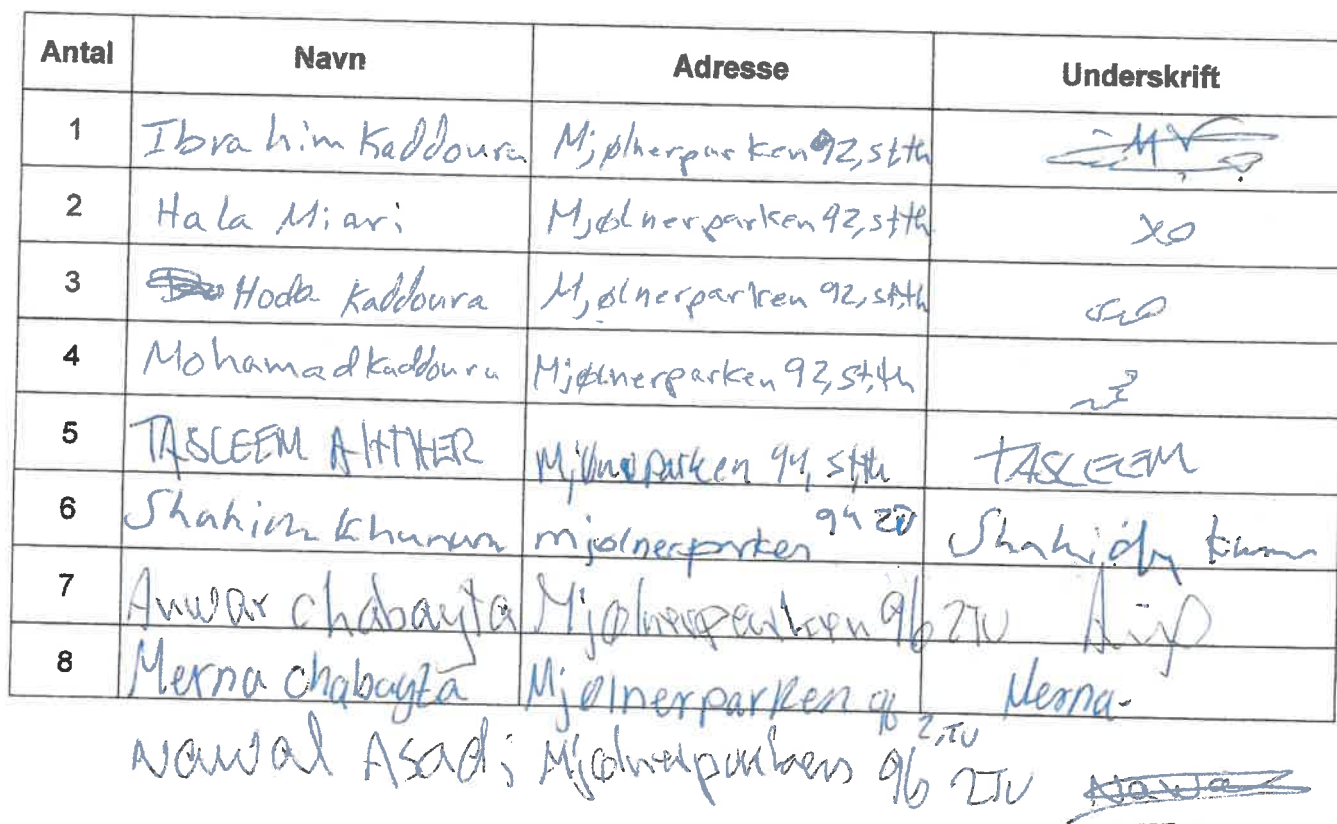 Antal Navn Adresse Underskrift
1 Ibrahim Kaddoura Mjølnerparken 92, st,th
2 Hala Miari Mjølnerparken 92, st,th
3 Hoda Kaddoura Mjølnerparken 92, st,th
4 Mohamad Kaddoura Mjølnerparken 92, st,th
5 TASLEEM AHTHER Mjølnerparken 94, st,th TASLEEM
6 mjølnerparken 94 2TV
7 Anwar chabayta Mjølnerparken 96 2TV
8 Merna chabayta Mjølnerparken 96 2,TV Merna-
Nawal Asadi Mjølnerparken 96 2TV Nawal